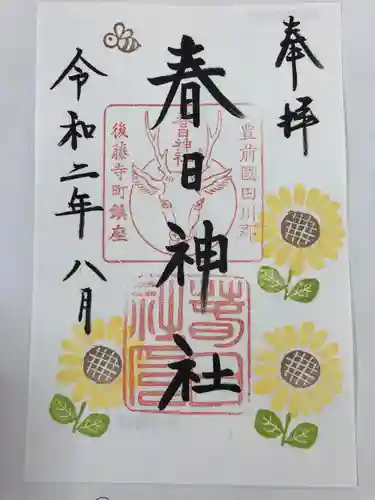 奉拝
春日神社
令和二年八月
豊前國田川郡
春日神社
後藤寺町鎮座
春日社印